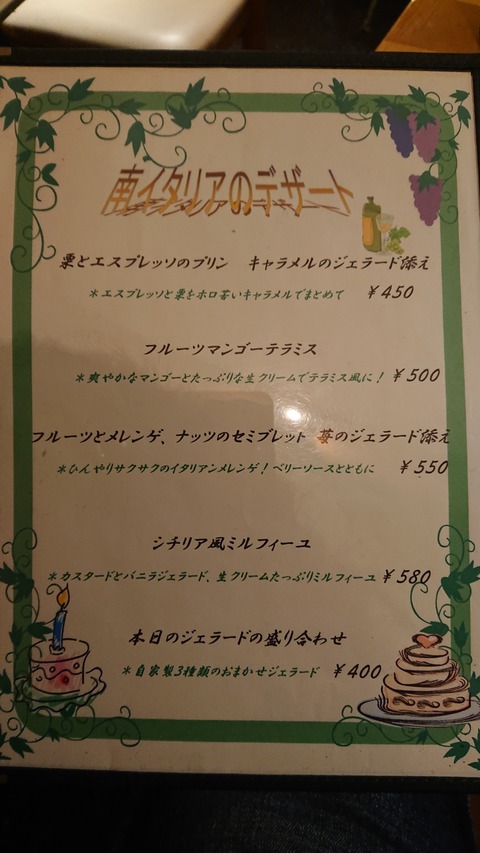 南イタリアのデザート
栗とエスプレッソのプリン キャラメルのジェラード添え
＊エスプレッソと栗をホロ苦いキャラメルでまとめて ￥450
フルーツマンゴーテラミス
＊爽やかなマンゴーとたっぷりな生クリームでテラミス風に！ ￥500
フルーツとメレンゲ、ナッツのセミブレット 苺のジェラード添え
＊ひんやりサクサクのイタリアンメレンゲ！ベリーソースとともに ￥550
シチリア風ミルフィーユ
＊カスタードとバニラジェラード、生クリームたっぷりミルフィーユ ￥580
本日のジェラードの盛り合わせ
＊自家製3種類のおまかせジェラード ￥400